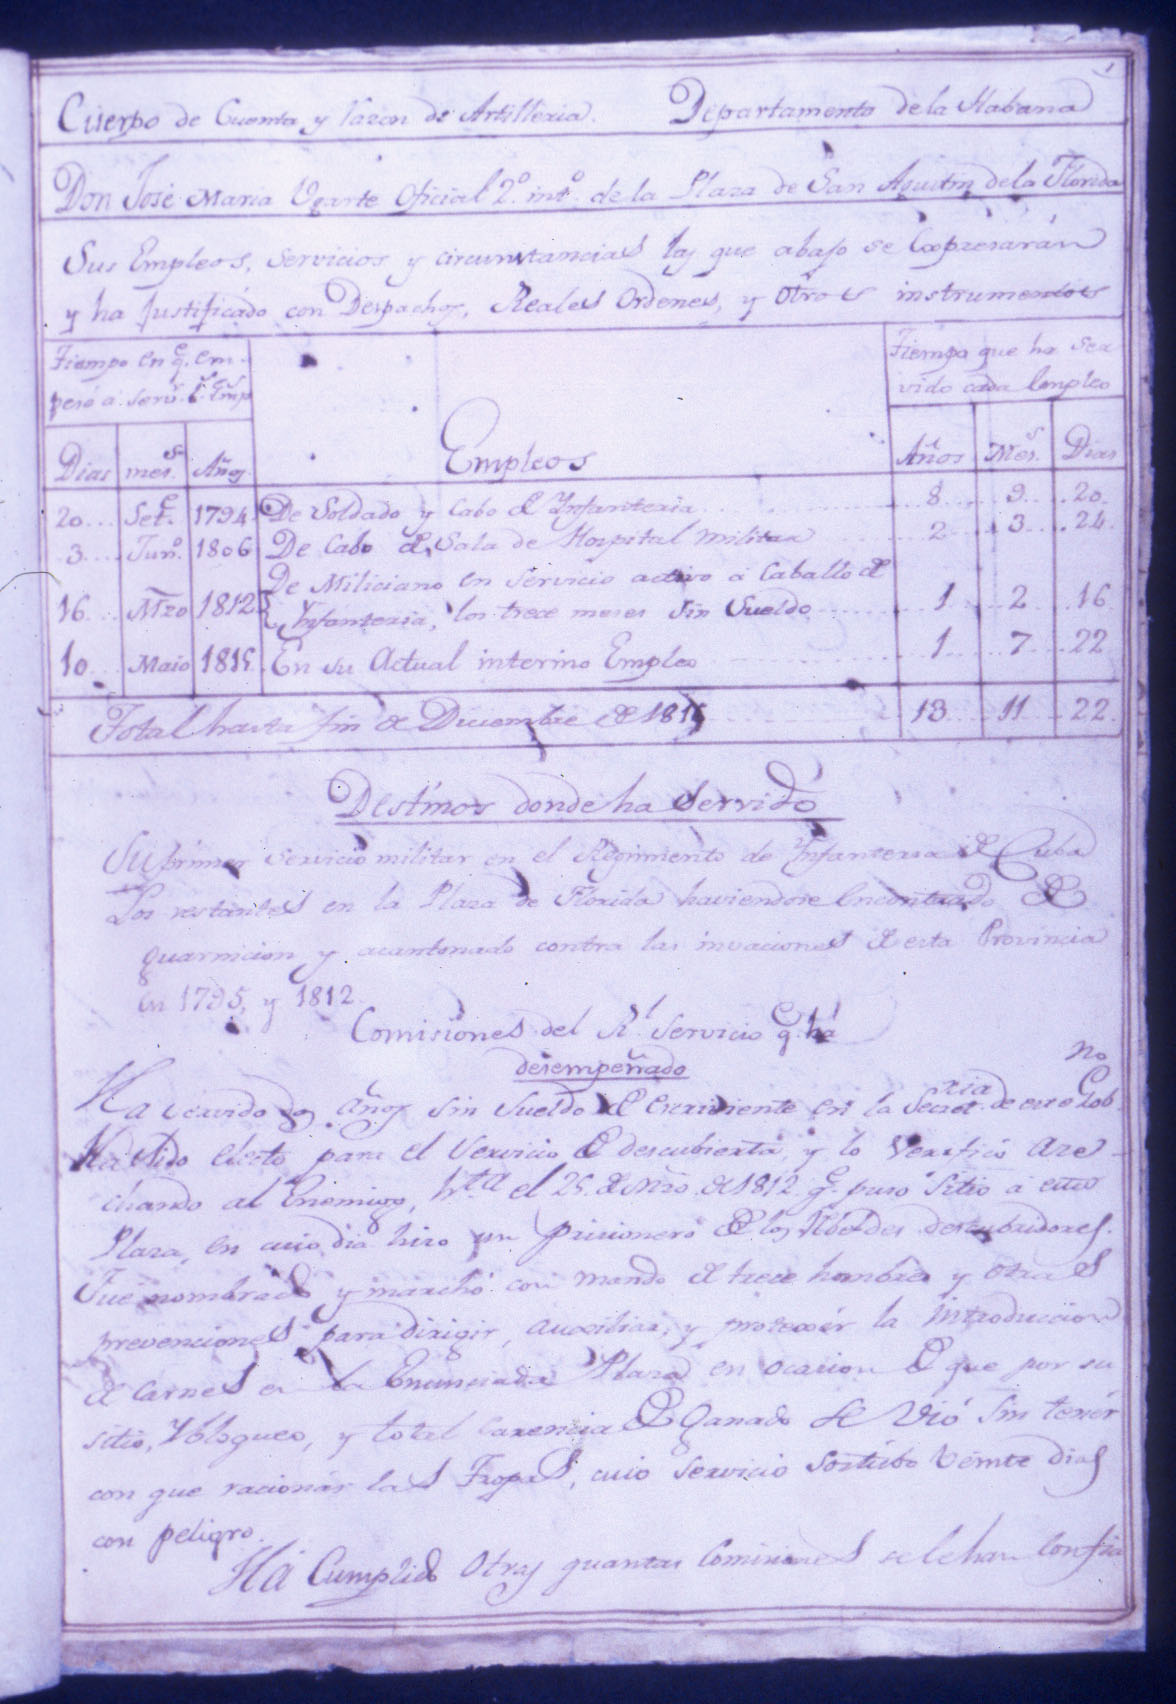 1
Cuerpo de Cuenta y razon de Artilleria. Departamento de la Habana
Don José Maria Ugarte Oficial 2.º int.º de la Plaza de San Agustin de la Florida
Sus Empleos, servicios y circunstancias las que abajo se Expresarán
y ha justificado con Despachos, Reales Ordenes, y otros instrumentos
Tiempo en q.e em-
pezó a serv.r l.s Emp.s
Tiempo que ha ser
vido cada Empleo
Dias mes.s Años Empleos Años Mes.s Dias
20 Set.e 1794 De Soldado y Cabo de Infanteria 8 9 20
3 Jun.o 1806 De Cabo de Sala de Hospital militar 2 3 24
16 Mzo 1812 De Miliciano en servicio activo a Caballo de
Infanteria, los trece meses sin Sueldo 1 2 16
10 Maio 1815 En su Actual interino Empleo 1 7 22
Total hasta fin de Diciembre de 181 13 11 22
Destinos donde ha servido
Su primer servicio militar en el Regimiento de Infanteria de Cuba
Los restantes en la Plaza de Florida haviendose Encontrado de
guarnicion y acantonado contra las invaciones de esta Provincia
en 1795, y 1812
Comisiones del R.l servicio q.e há
desempeñado
Ha servido años sin sueldo de escriviente en la Secret.ria de este Gob.no
Ha sido electo para el servicio de descubierta, y lo verificó aze
chando al Enemigo, h.ta el 25 de Mzo de 1812 q.e puso sitio a esta
Plaza, en cuio dia hizo un prisionero de los Rbeldes descubridores.
Fue nombrado y marchó con mando de trece hombres y otras
prevenciones para dirigir, auxiliar, y protexér la introduccion
de carnes en la Enunciada Plaza en ocacion de que por su
sitio, Ybloqueo, y total carencia de Ganado se vió sin tenér
con que racionár las Tropas, cuio servicio sostubo veinte dias
con peligro.
Há Cumplido otras quantas Comisiones se le han confia